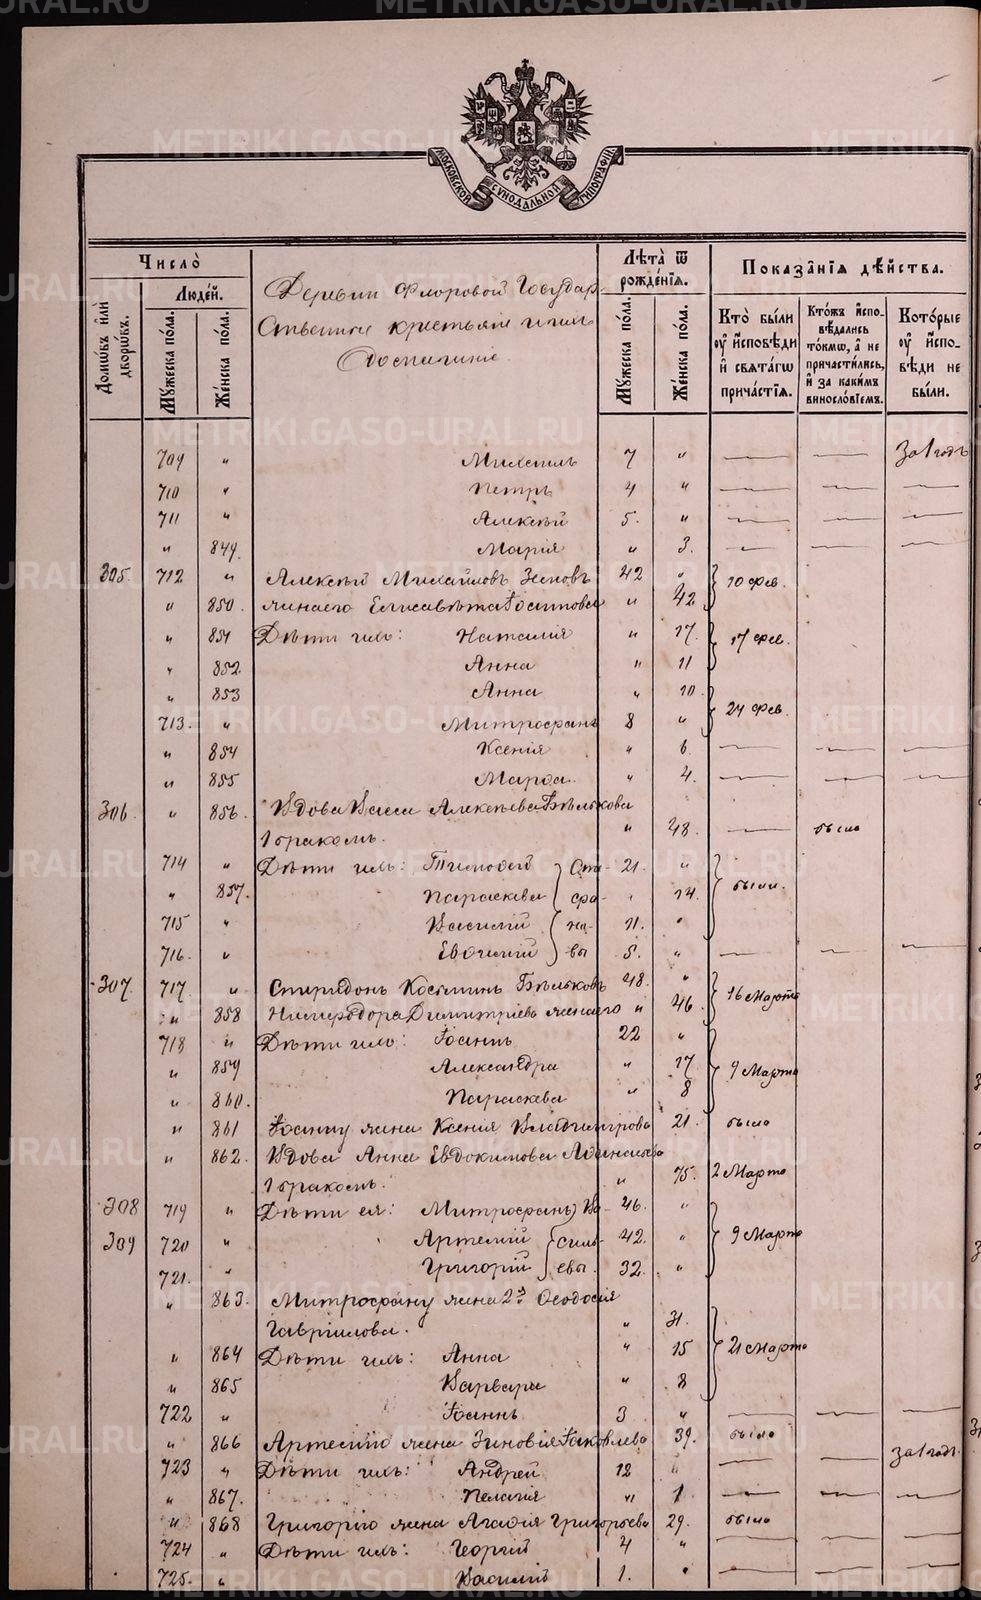 METRIKI.GASO-URAL.RU
МОСКОВСКОЙ СѴНОДАЛЬНОЙ ТИПОГРАФІИ
Число̀
Домѡ́въ и҆лѝ дворѡ́въ.
Люде́й.
Мꙋ́жеска по́ла.
Же́нска по́ла.
Деревни Флоровой Государ-
ственные крестьяне и ихъ
домашніе
Лѣ́та ѿ рожде́нїѧ.
Мꙋ́жеска по́ла.
Же́нска по́ла.
Показа̑нїѧ дѣ́йства.
Кто̀ бы́ли ᲂу҆ и҆сповѣ́ди и҆ свѧта́гѡ прича́стїѧ.
Кто́жъ и҆спо-вѣ́дались то́кмѡ, а҆ не причасти́лись, и҆ за каки́мъ виносло́вїемъ.
Кото́рые ᲂу҆ и҆спо-вѣ́ди не бы́ли.
709 " Михаилъ 7 " — — За 1 годъ
710 " Петръ 4 " — — —
711 " Алексѣй 5. " — — —
" 849. Марія " 3. — — —
305. 712 " Алексѣй Михайловъ Зыковъ 42 " 10 фев.
" 850. жинаего Елисавѣта Іосипова " 42
" 851 Дѣти ихъ: Наталія " 17. 17 фев.
" 852 Анна " 11
" 853 Анна " 10. 24 фев.
713. " Митрофанъ 8 "
" 854 Ксенія " 6. — — —
" 855 Марѳа. " 4. — — —
306. " 856. Вдова Васса Алексѣева Бѣлькова
1 бракомъ. " 48. — была
714 " Дѣти ихъ: Тимоѳей Ста- 21. " были.
" 857. Параскева фа- " 14.
715 " Василій но- 11. "
716. " Евѳимій вы 5. " — — —
307. 717 " Спиридонъ Космынъ Бѣльковъ 48. " 16 Марта
" 858 Нимфодора Димитріева жинаего " 46.
718 " Дѣти ихъ: Іоаннъ 22 " 9 Марта
" 859 Александра " 17
" 860. Параскева " 8
" 861 Іоанну жина Ксенія Владимірова 21. была
" 862. Вдова Анна Евдокимова Аѳанасьева
1 бракомъ. " 75. 2 Марта
308 719 " Дѣти ея: Митрофанъ Ва- 46. " 9 Марта
309 720 " Артемій силь- 42. "
721. " Григорій евы. 32. "
" 863. Митрофану жина 2я Ѳеодосія
Гавріилова. " 31. 21 Марта
" 864 Дѣти ихъ: Анна " 15
" 865 Варвара " 8
722 " Іоаннъ 3 " — — —
" 866 Артемію жина Зиновія Іаковлева 39. была
723 " Дѣти ихъ: Андрей 12 " — — За 1 годъ.
" 867. Пелагія " 1. — — —
" 868 Григорію жина Агафія Григорьева 29. была
724 " Дѣти ихъ: Георгій 4 " — — —
725. " Василій 1. " — — —